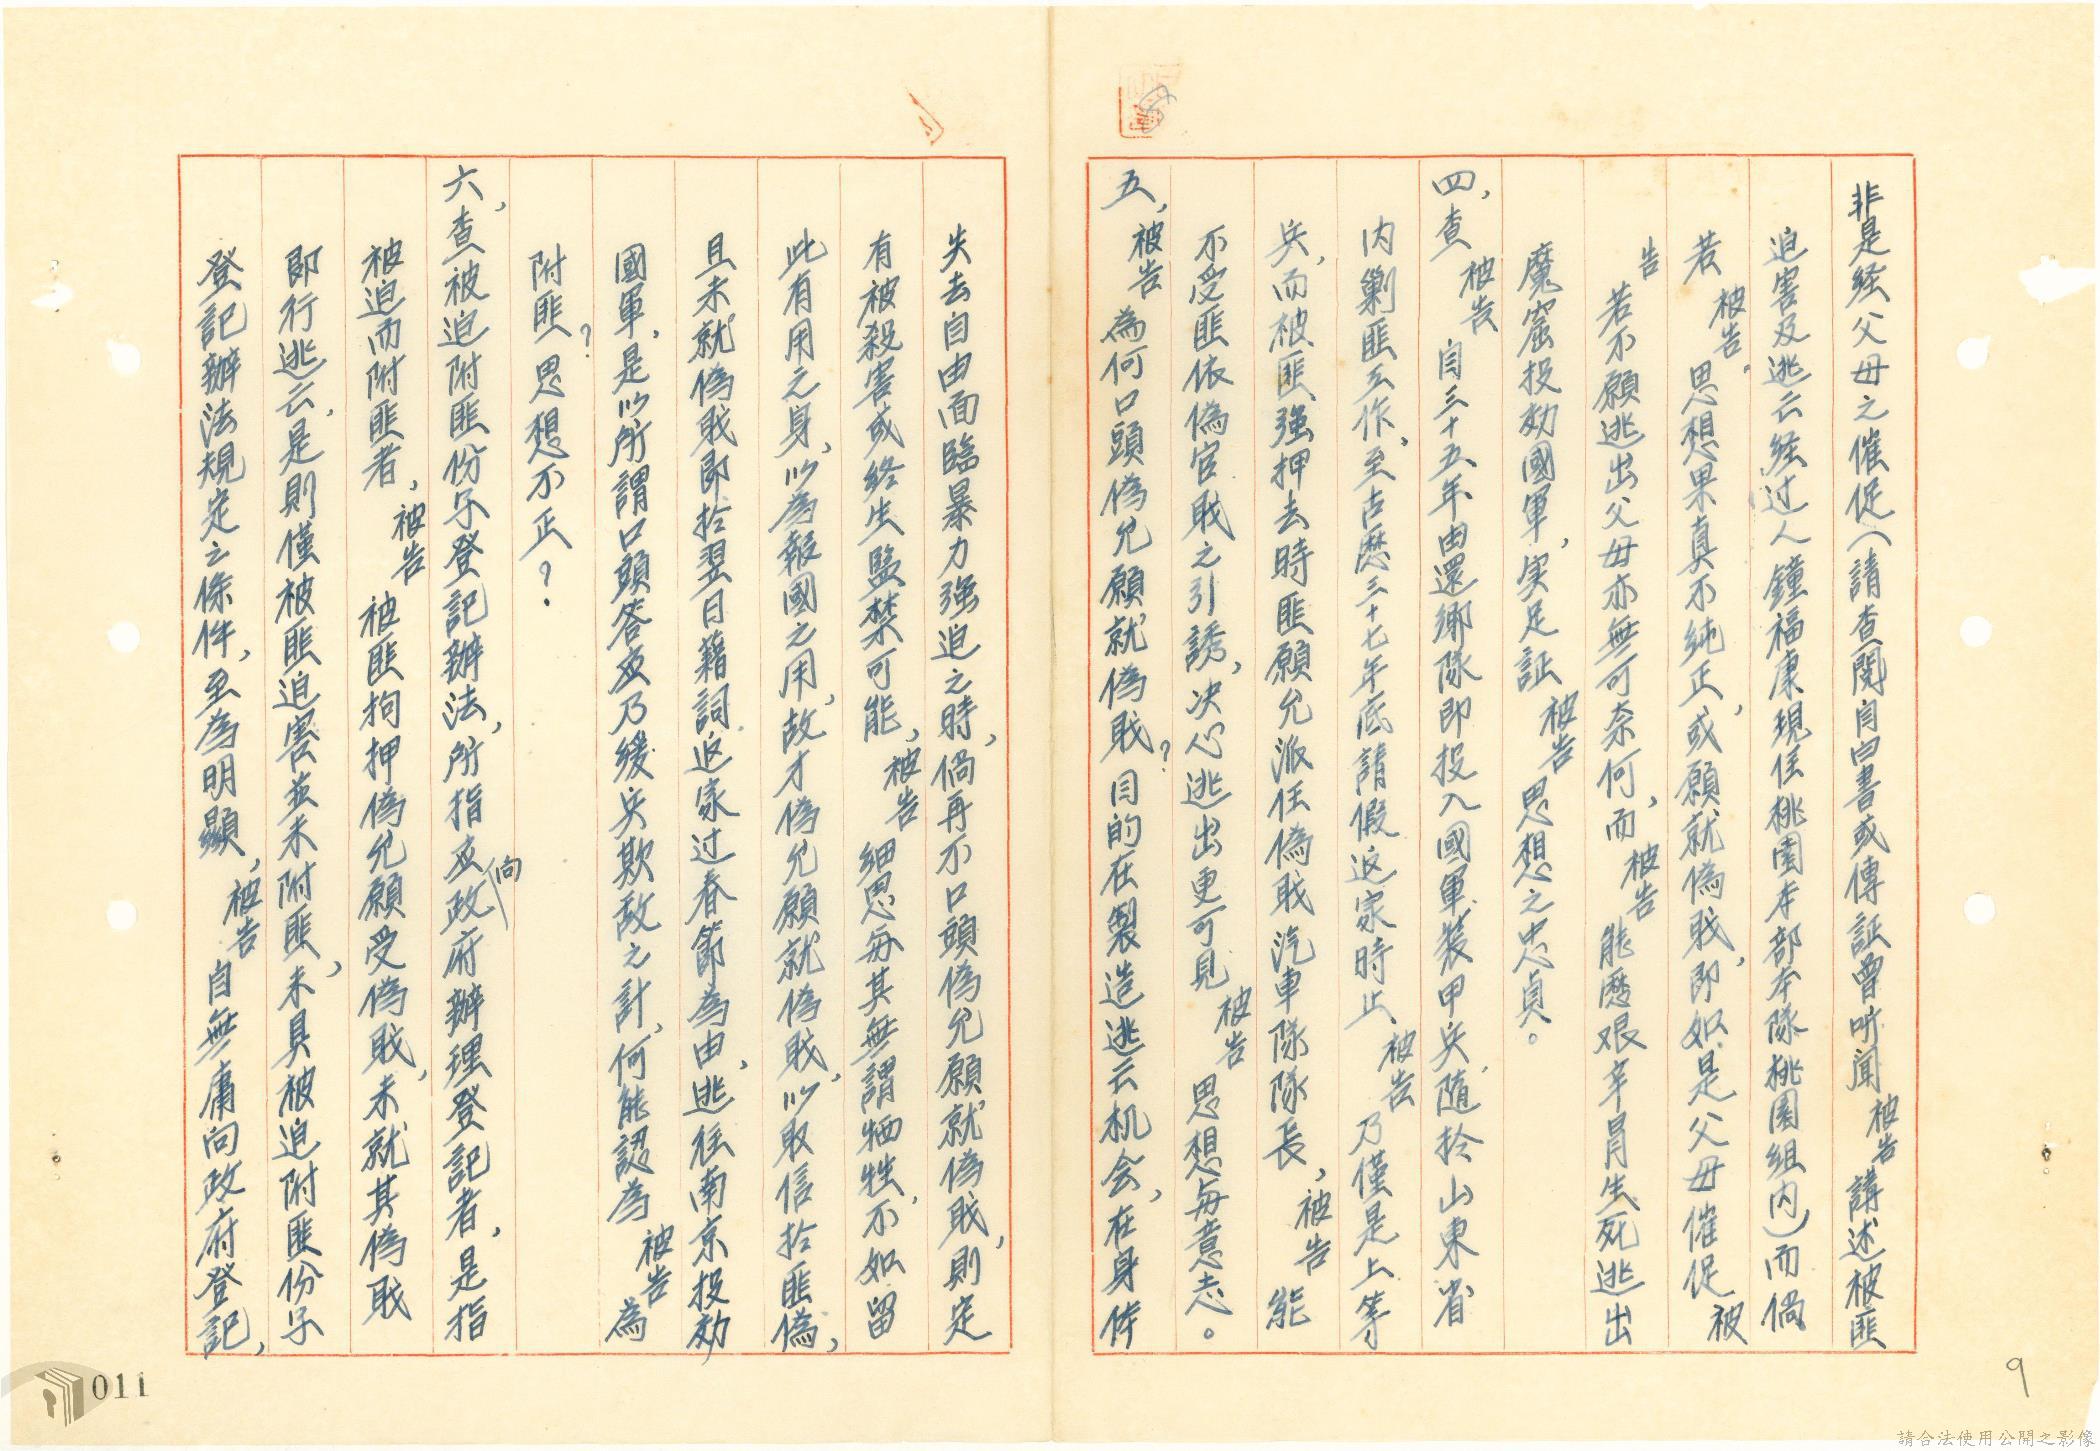 非是経父母之催促(請查閱自白書或傳証曾听聞被告講述被匪
迫害及逃云経过人鐘福康現住桃園本部本隊桃園組內)而倘
若被告思想果真不純正,或願就偽戝,即如是父母催促被
告若不願逃出父母亦無可奈何,而被告能歷艰辛冒生死逃出
魔窟投効國軍,実足証被告思想之忠貞。
四,查被告自三十五年由還鄉隊即投入國軍装甲兵隨拎山東省
內剿匪工作,至古歷三十七年底請假返家時止被告乃僅是上等
兵,而被匪强押去時匪願允派任偽戝汽車隊隊長,被告能
不受匪依偽官戝之引誘,决心逃出更可見被告思想每意志。
五,被告為何口頭偽允願就偽戝?目的在製造逃云机会,在身体
失去自由面臨暴力强迫之時,倘再不口頭偽允願就偽戝,則定
有被殺害或終生監禁可能,被告細思每其無謂牺牲,不如留
此有用之身,以為報國之用,故才偽允願就偽戝,以取信拎匪偽,
且未就偽戝即拎翌日藉詞返家过春節為由,逃往南京投効
國軍,是以所謂口頭答应乃缓兵欺敌之計,何能認為被告為
附匪?思想不正?.
六,查被迫附匪份子登記辦法,所指应向政府辦理登記者,是指
被迫而附匪者,被告被匪拘押偽允願受偽戝,未就其偽戝
即行逃云,是則僅被匪迫害並未附匪,未具被迫附匪份子
登記辦法規定之條件,至為明顯,被告自無庸向政府登記,
011
9
請合法使用公開之影像